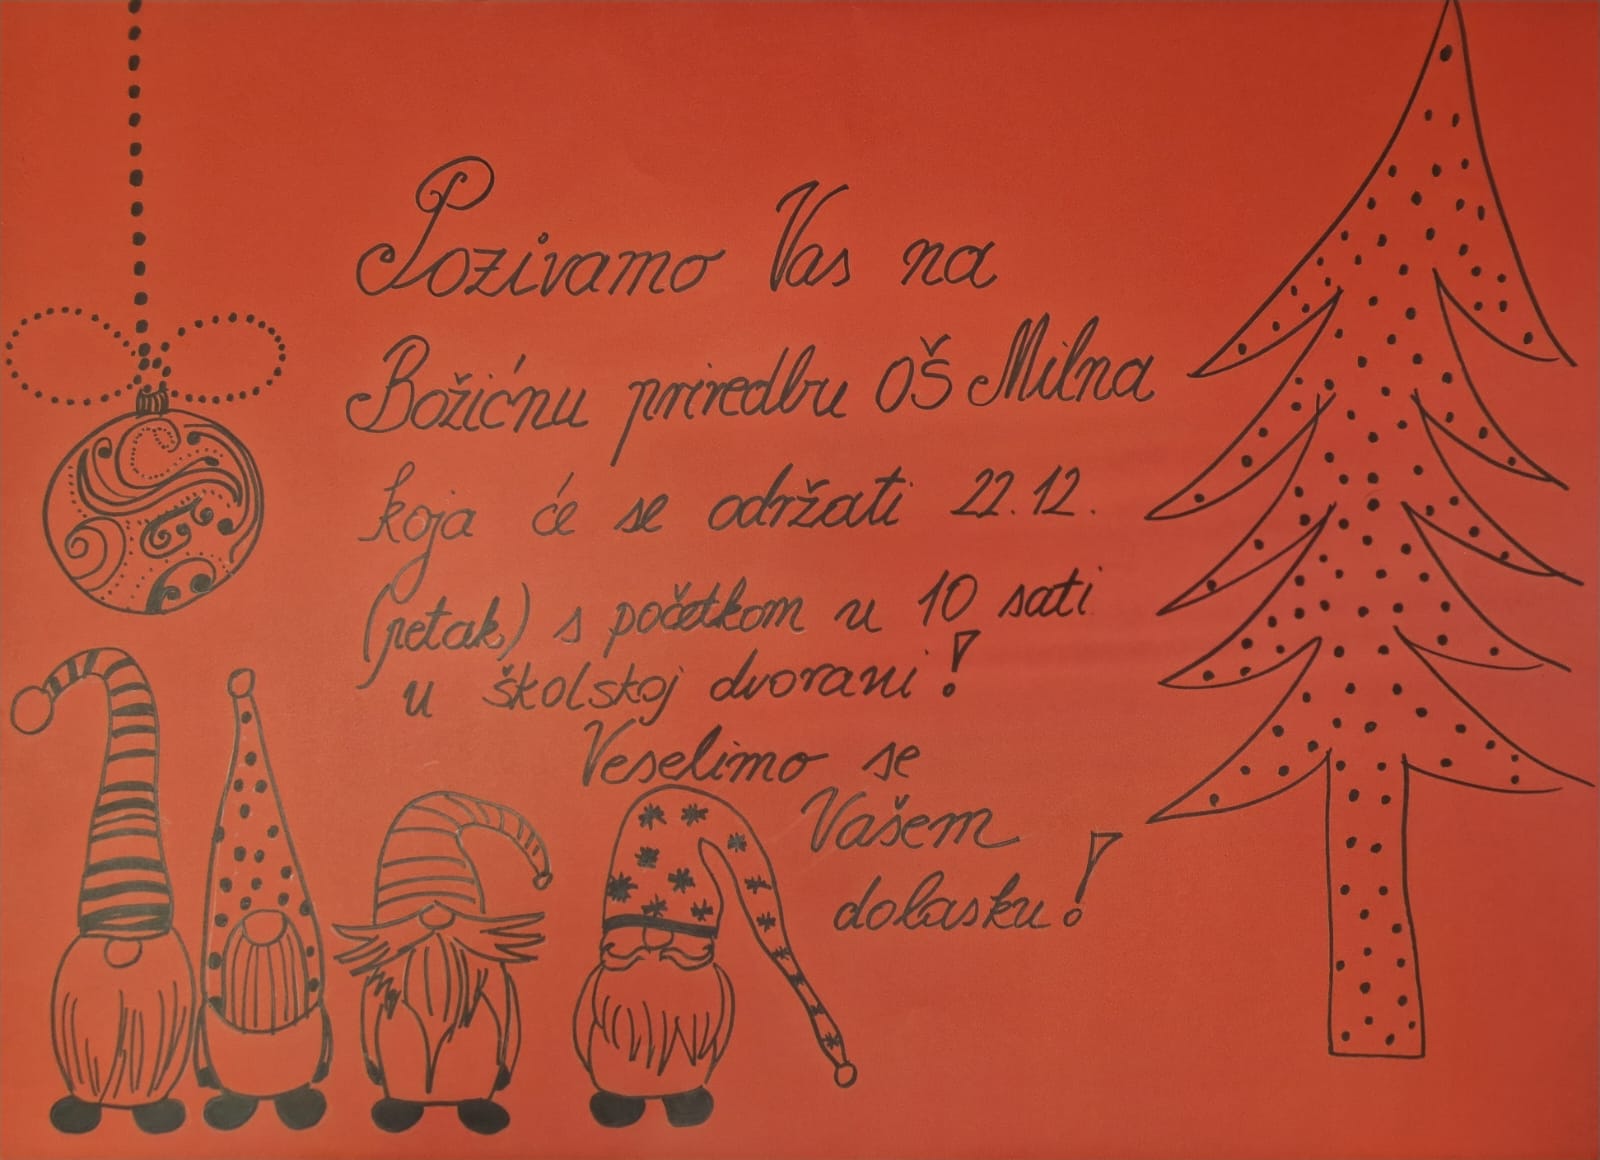 Pozivamo Vas na
Božićnu priredbu OŠ Milna
koja će se održati 22.12.
(petak) s početkom u 10 sati
u školskoj dvorani!
Veselimo se
Vašem
dolasku!